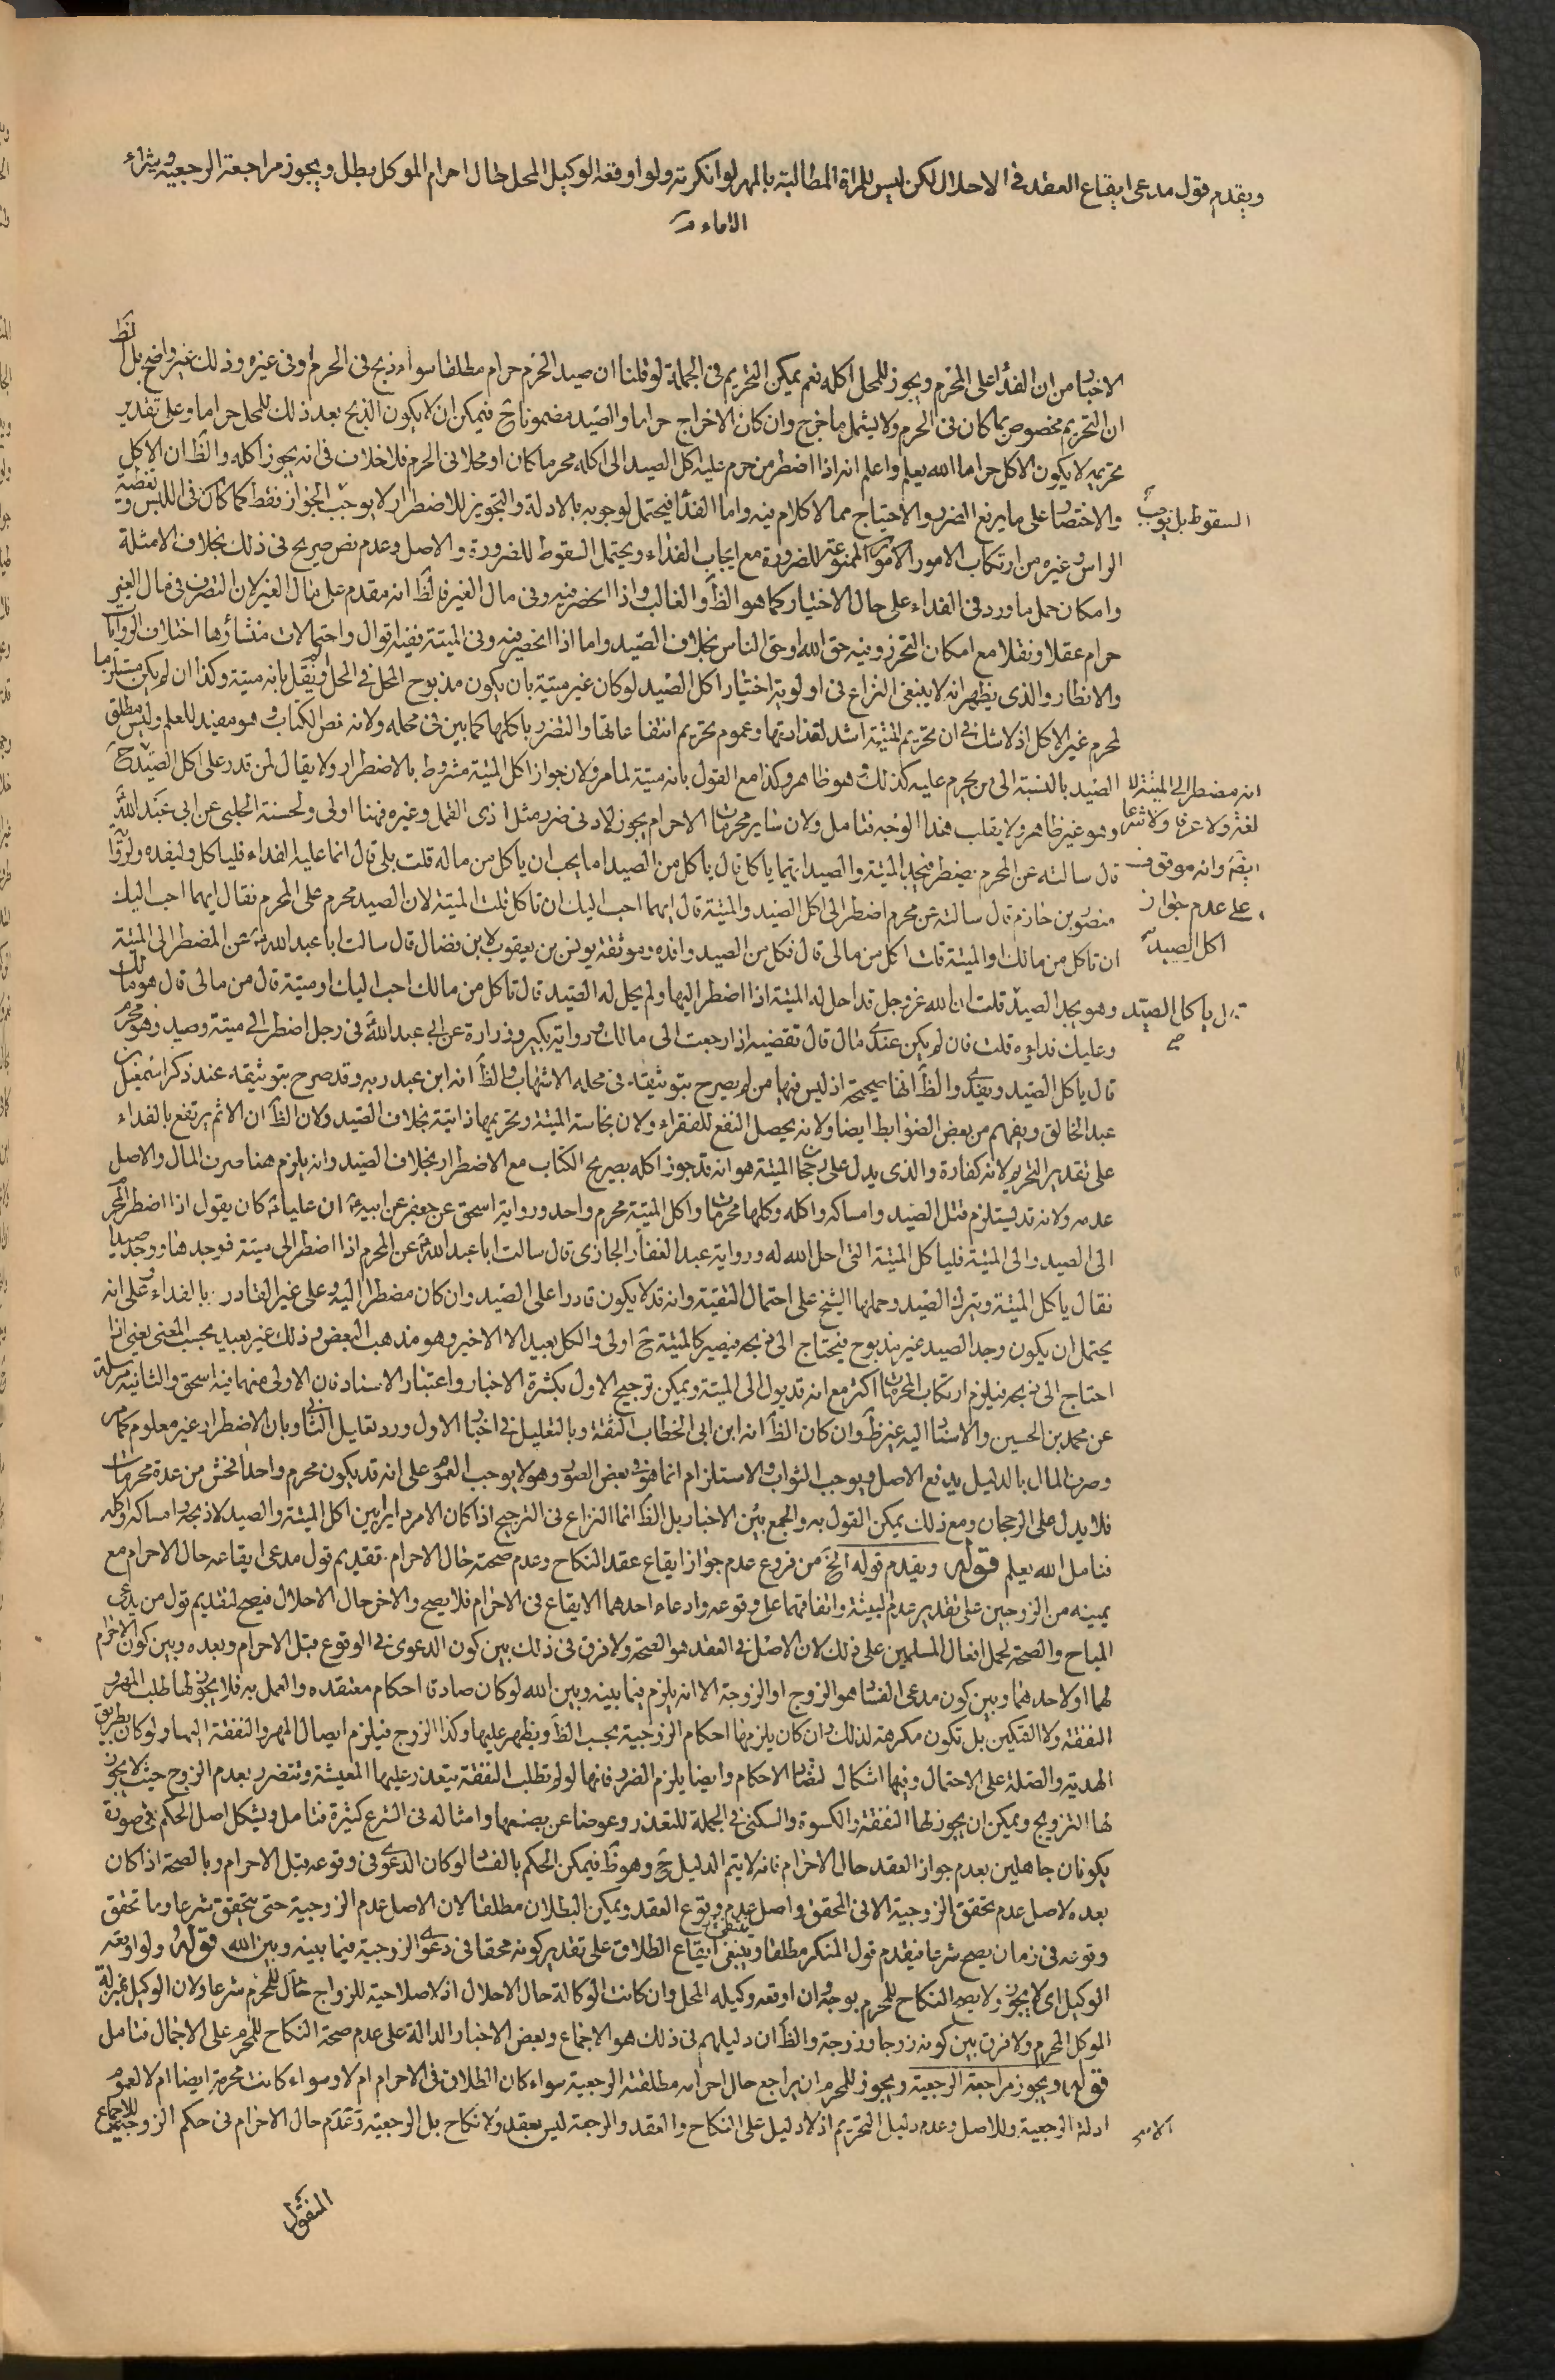 ويقدم قول مدعى ايقاع العقد فى الاحلال لكن ليس للمراة المطالبة بالمهر لو انكرته ولو اوقعه الوكيل المحل حال احرام الموكل بطل ويجوز مراجعة الرجعية وشراء
الاماء
الاخبار من ان الفداء على المحرم ويجوز للمحل اكله نعم يمكن التحريم فى الجملة لو قلنا ان صيد الحرم حرام مطلقا سواء ذبح فى الحرم او فى غيره وذلك غير واضح بل الظ
ان التحريم مخصوص بما كان فى الحرم ولا يشمل ما خرج وان كان الاخراج حراما والصيد مضمونا ح فيمكن ان لا يكون الذبح بعد ذلك للمحل حراما وعلى تقدير
تحريمه لا يكون الاكل حراما الله يعلم واعلم انه اذا اضطر من حرم عليه اكل الصيد الى اكله محرما كان او محلا فى الحرم فلا خلاف فى انه يجوز اكله والظ ان الاكل
والاختصار على ما يرفع الضرر والاحتياج مما لا كلام فيه واما الفداء فيحتمل لوجوبه بالادلة والتجويز للاضطرار لا يوجب الجواز فقط كما كان فى اللبس وتغطية
السقوط بل يوجب
الراس وغيره من ارتكاب الامور الممنوعة للضرورة مع ايجاب الفداء ويحتمل السقوط للضرورة والاصل وعدم نص صريح فى ذلك بخلاف الامثلة
وامكان حمل ما ورد فى الفداء على حال الاختيار كما هو الظ والغالب واذا انحصر فيه وفى مال الغير فالظ انه مقدم على مال الغير لان التصرف فى مال الغير
حرام عقلا ونقلا مع امكان التحرز وفيه حق الله او حق الناس بخلاف الصيد واما اذا انحصر فيه وفى الميتة ففيه اقوال واحتمالات منشاؤها اختلاف الروايات
والانظار والذى يظهر انه لا ينبغى النزاع فى اولوية اختيار اكل الصيد لو كان غير ميتة بان يكون مذبوح المحل فى الحل ولم نقل بانه ميتة وكذا ان لم يكن مستلزما
لمحرم غير الاكل اذ لا شك فى ان تحريم الميتة اشد لقذارتها وعموم تحريم انتفاعاتها والتضرر باكلها كما بين فى محله ولانه نص الكتاب وهو مفيد للعلم وليس مطلق
الصيد بالنسبة الى من يحرم عليه كذلك وهو ظاهر وكذا مع القول بانه ميتة لما مر ولان جواز اكل الميتة مشروط بالاضطرار ولا يقال لمن قدر على اكل الصيد ح
انه مضطر الى الميتة لا
لغة ولا عرفا ولا شرعا
وهو غير ظاهر ولا يقلب هذا الوجه فتامل ولان سائر محرمات الاحرام يجوز لادنى ضرر مثل اذى القمل وغيره فهنا اولى ولحسنة الحلبى عن ابى عبد الله
ايضا وانه موقوف
على عدم جواز
اكل الصيد
قال سالته عن المحرم يضطر فيجد الميتة والصيد ايهما ياكل قال ياكل من الصيد اما يحب ان ياكل من ماله قلت بلى قال انما عليه الفداء فلياكل وليفده ولرواية
منصور بن حازم قال سالته عن محرم اضطر الى اكل الصيد والميتة قال ايهما احب اليك ان تاكل قلت الميتة لان الصيد محرم على المحرم فقال ايهما احب اليك
ان تاكل من مالك او الميتة قلت اكل من مالى قال فكل من الصيد وافده وموثقة يونس بن يعقوب لابن فضال قال سالت ابا عبد الله عن المضطر الى الميتة
وهو يجد الصيد قلت ان الله عز وجل قد احل له الميتة اذا اضطر اليها ولم يحل له الصيد قال تاكل من مالك احب اليك او ميتة قال من مالى قال هو مالك
قال ياكل الصيد
صح
وعليك فداؤه قلت فان لم يكن عندى مال قال تقضيه اذا رجعت الى مالك ورواية بكير وزرارة عن ابى عبد الله فى رجل اضطر الى ميتة وصيد وهو محرم
قال ياكل الصيد ويفدى والظ انها صحيحة اذ ليس فيها من لم يصرح بتوثيقه فى محله الا شهاب والظ انه ابن عبد ربه وقد صرح بتوثيقه عند ذكر اسمعيل بن
عبد الخالق ويفهم من بعض الضوابط ايضا ولانه يحصل النفع للفقراء ولان نجاسة الميتة وتحريمها ذاتية بخلاف الصيد ولان الظ ان الاثم يرتفع بالفداء
على تقدير التحريم لانه كفارة والذى يدل على رجحان الميتة هو انه قد جوز اكله بصريح الكتاب مع الاضطرار بخلاف الصيد وانه يلزم هنا صرف المال والاصل
عدمه ولانه قد يستلزم قتل الصيد وامساكه واكله وكلها محرمات واكل الميتة محرم واحد ورواية اسحق عن جعفر عن ابيه ان عليا كان يقول اذا اضطر المحرم
الى الصيد والى الميتة فلياكل الميتة التى احل الله له ورواية عبد الغفار الجازى قال سالت ابا عبد الله عن المحرم اذا اضطر الى ميتة فوجدها ووجد صيدا
فقال ياكل الميتة ويترك الصيد وحملها الشيخ على احتمال التقية وانه قد لا يكون قادرا على الصيد وان كان مضطرا اليه وعلى غير القادر بالفداء وعلى انه
يحتمل ان يكون وجد الصيد غير مذبوح فيحتاج الى ذبحه فيصير كالميتة ح اولى والكل بعيد الا الاخير وهو مذهب البعض وذلك غير بعيد بحسب المعنى يعنى اذا
احتاج الى ذبحه فيلزم ارتكاب المحرمات اكثر مع انه قد يؤل الى الميتة ويمكن ترجيح الاول بكثرة الاخبار واعتبار الاسناد فان الاولى منهما فيه اسحق والثانية مرسلة
عن محمد بن الحسين والاسناد اليه غير ظ وان كان الظ انه ابن ابى الخطاب الثقة وبالتعليل فى اخبار الاول ورد تعليل الثانى وبان الاضطرار غير معلوم كما مر
وصرف المال بالدليل يدفع الاصل ويوجب الثواب والاستلزام انما هو فى بعض الصور وهو لا يوجب العموم على انه قد يكون محرم واحد افحش من عدة محرمات
فلا يدل على الرجحان ومع ذلك يمكن القول به والجمع بين الاخبار بل الظ انما النزاع فى الترجيح اذا كان الامر دايرا بين اكل الميتة والصيد لا ذبحه وامساكه واكله
فتامل الله يعلم قوله ويقدم قوله الخ من فروع عدم جواز ايقاع عقد النكاح وعدم صحته حال الاحرام تقديم قول مدعى ايقاعه حال الاحرام مع
يمينه من الزوجين على تقدير عدم البينة واتفاقهما على وقوعه وادعاء احدهما الايقاع فى الاحرام فلا يصح والاخر حال الاحلال فيصح لتقديم قول من يدعى
المباح والصحة لحمل افعال المسلمين على ذلك لان الاصل فى العقد هو الصحة ولا فرق فى ذلك بين كون الدعوى فى الوقوع قبل الاحرام وبعده وبين كون الاحرام
لهما او لاحدهما وبين كون مدعى الفساد هو الزوج او الزوجة الا انه يلزم فيما بينه وبين الله لو كان صادقا احكام معتقده والعمل به فلا يجوز لها طلب المهر و
النفقة ولا التمكين بل تكون مكرهة لذلك وان كان يلزمها احكام الزوجية بحسب الظ ويظهر عليها وكذا الزوج فيلزم ايصال المهر والنفقة اليها ولو كان بطريق
الهدية والصلة على الاحتمال وفيها اشكال لتضاد الاحكام وايضا يلزم الضرر فانها لو لم تطلب النفقة يتعذر عليها المعيشة وتتضرر بعدم الزوج حيث لا يجوز
لها التزويج ويمكن ان يجوز لها النفقة والكسوة والسكنى فى الجملة للتعذر وعوضا عن بضعها وامثاله فى الشرع كثيرة فتامل ويشكل اصل الحكم فى صورة
يكونان جاهلين بعدم جواز العقد حال الاحرام فانه لا يتم الدليل ح وهو ظ فيمكن الحكم بالفساد لو كان الدعوى فى وقوعه قبل الاحرام وبالصحة اذا كان
بعده لاصل عدم تحقق الزوجية الا فى المحقق واصل عدم وقوع العقد ويمكن البطلان مطلقا لان الاصل عدم الزوجية حتى يتحقق شرعا وما تحقق
وقوعه فى زمان يصح شرعا فيقدم قول المنكر مطلقا وينبغى ايقاع الطلاق على تقدير كونه محقا فى دعوى الزوجية فيما بينه وبين الله قوله ولو اوقعه
الوكيل اى لا يجوز ولا يصح النكاح للمحرم بوجه وان اوقعه وكيله المحل وان كانت الوكالة حال الاحلال اذ لا صلاحية للزواج حال للمحرم شرعا ولان الوكيل بمنزلة
الموكل المحرم ولا فرق بين كونه زوجا وزوجة والظ ان دليلهم فى ذلك هو الاجماع وبعض الاخبار الدالة على عدم صحة النكاح للمحرم على الاجمال فتامل
قوله ويجوز مراجعة الرجعية ويجوز للمحرم ان يراجع حال احرامه مطلقته الرجعية سواء كان الطلاق فى الاحرام ام لا وسواء كانت محرمة ايضا ام لا لعموم
ادلة الرجعية وللاصل وعدم دليل التحريم اذ لا دليل على النكاح والعقد والرجعة ليس بعقد ولا نكاح بل الرجعية وتقدم حال الاحرام فى حكم الزوجية للاجماع
المنقول